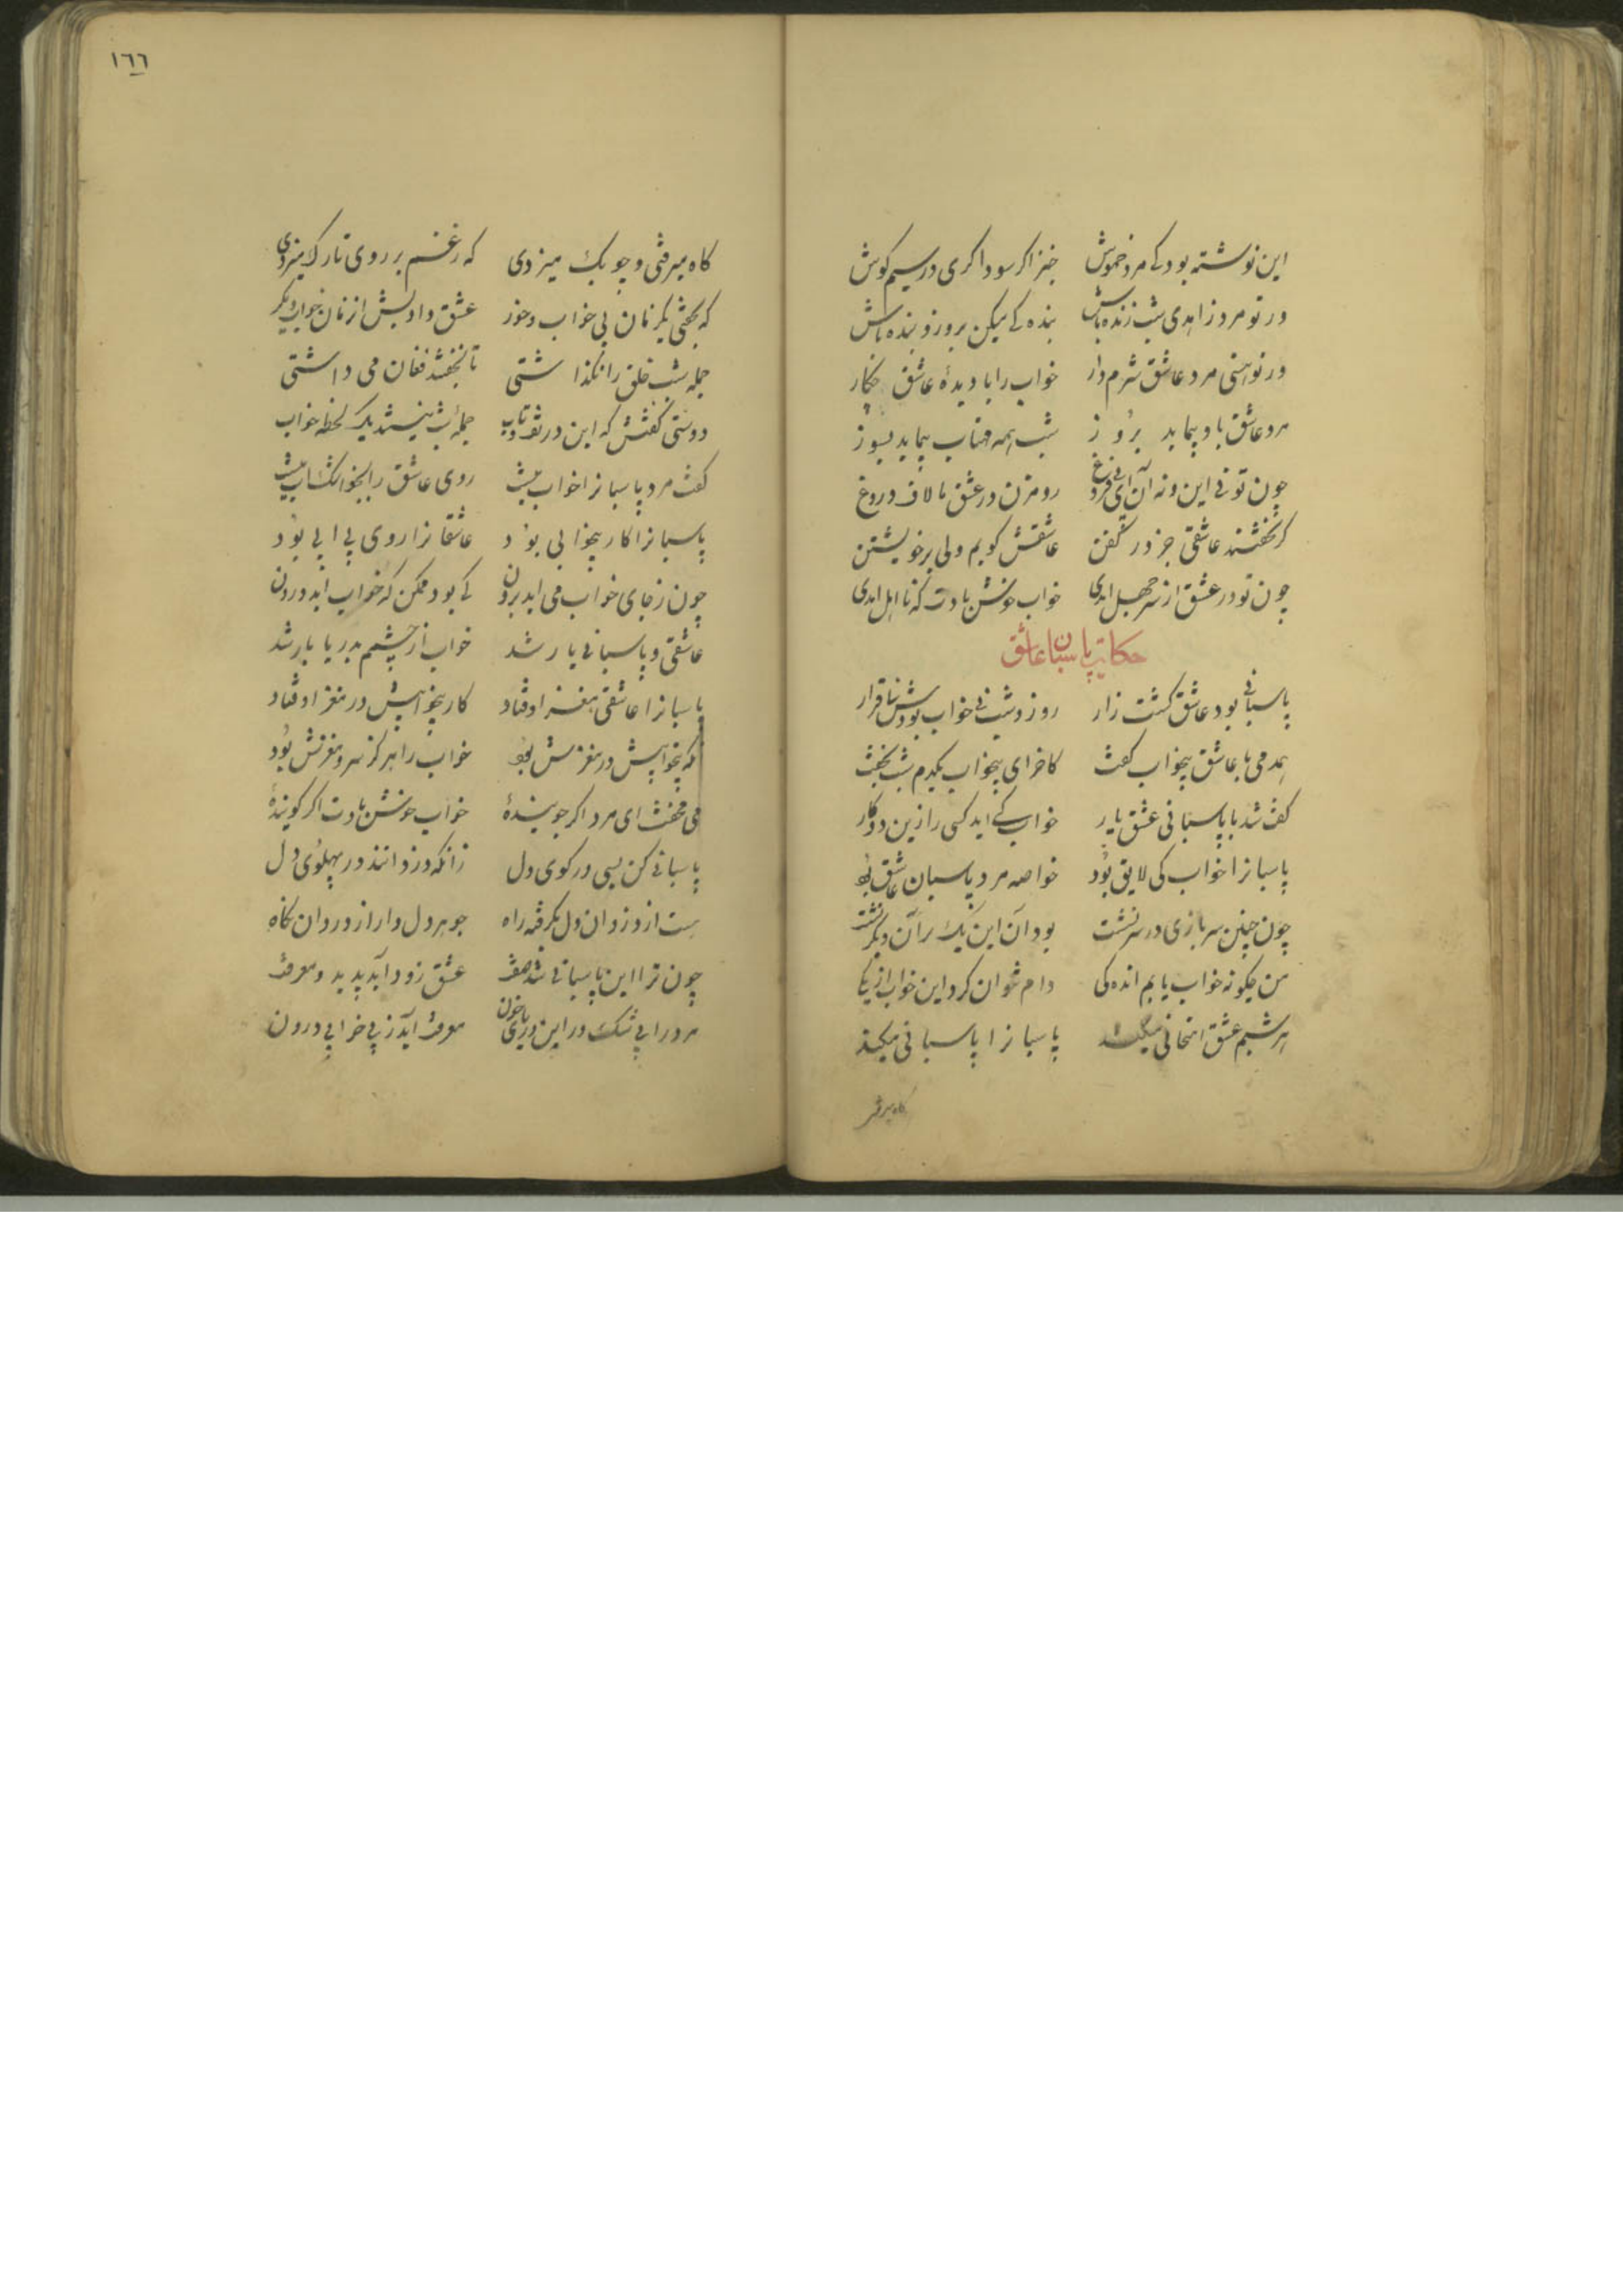 این نوشته بود کے مرد خموش خیز اکر سوداکری در سیم کوش
ور تو مرد زاهدی شب زنده باش بندکے میکن بروز و بنده باش
ور تو هستی مرد عاشق شرم دار خواب را با دیدهٔ عاشق چکار
مرد عاشق باد پیماید بروز شب همه مهتاب پیماید بسوز
چون تو نی این و نه آن ای بی فروغ رو مزن در عشق ما لاف دروغ
کر نخفتند عاشقی جز در کفن عاشقش کویم ولی بر خویشتن
چون تو در عشق از سر جهل امدی خواب خوش بادت که نا اهل امدی
حکایت پاسبان عاشق
پاسبانی بود عاشق کشت زار روز و شب بی خواب بودش نا قرار
همدمی با عاشق بیخواب کفت کاخر ای بیخواب یکدم شب بخفت
کفت شد با پاسبانی عشق یار خواب کے اید کسی را زین دو کار
پاسبانرا خواب کی لایق بود خواصه مرد پاسبان عاشق بود
چون چنین سربازی در سر نشست بود آن این یک بر آن دیکر نشست
من چکونه خواب یابم اندکی وام نتوان کرد این خواب از یکی
هر شبم عشق امتحانی میکند پاسبانرا پاسبانی میکند
کاه میرفتی
١٦٦
کاه میرفتی و چوبک میزدی که ز غم بر روی تارک میزدی
که بخفتی یکزمان بی خواب و خور عشق دادیش از زمان خواب دیکر
جمله شب خلق را نکذاشتی تا بخفتند فغان می داشتی
دوستی کفتش که این در تف و تاب جملهٔ شب نیستند یک لحظه خواب
کفت مرد پاسبانرا خواب نیست روی عاشق را بجز اشک آب نیست
پاسبانرا کار بیخوابی بود عاشقانرا روی بی ابی بود
چون ز جای خواب می اید برون کے بود ممکن که خواب اید درون
عاشقی و پاسبانی یار شد خواب از چشمم بدریا بار شد
پاسبانرا عاشقی مغز اوفتاد کار بیخوابیش در مغز اوفتاد
که بیخوابیش در مغزش بود خواب را هرکز سر و مغزش بود
می مخفت ای مرد اکر جویندهٔ خواب خوش بادت اکر کویندهٔ
پاسبانی کن بسی در کوی دل زانکه دزدانند در پهلوی دل
هست از دزدان دل بکرفته راه جوهر دل دار از دزدان نکاه
چون ترا این پاسبانی شد صفت عشق زود آید پدید و معرفت
مرد را بی شک در این دریای خون معرفت آید ز بی خوابی درون